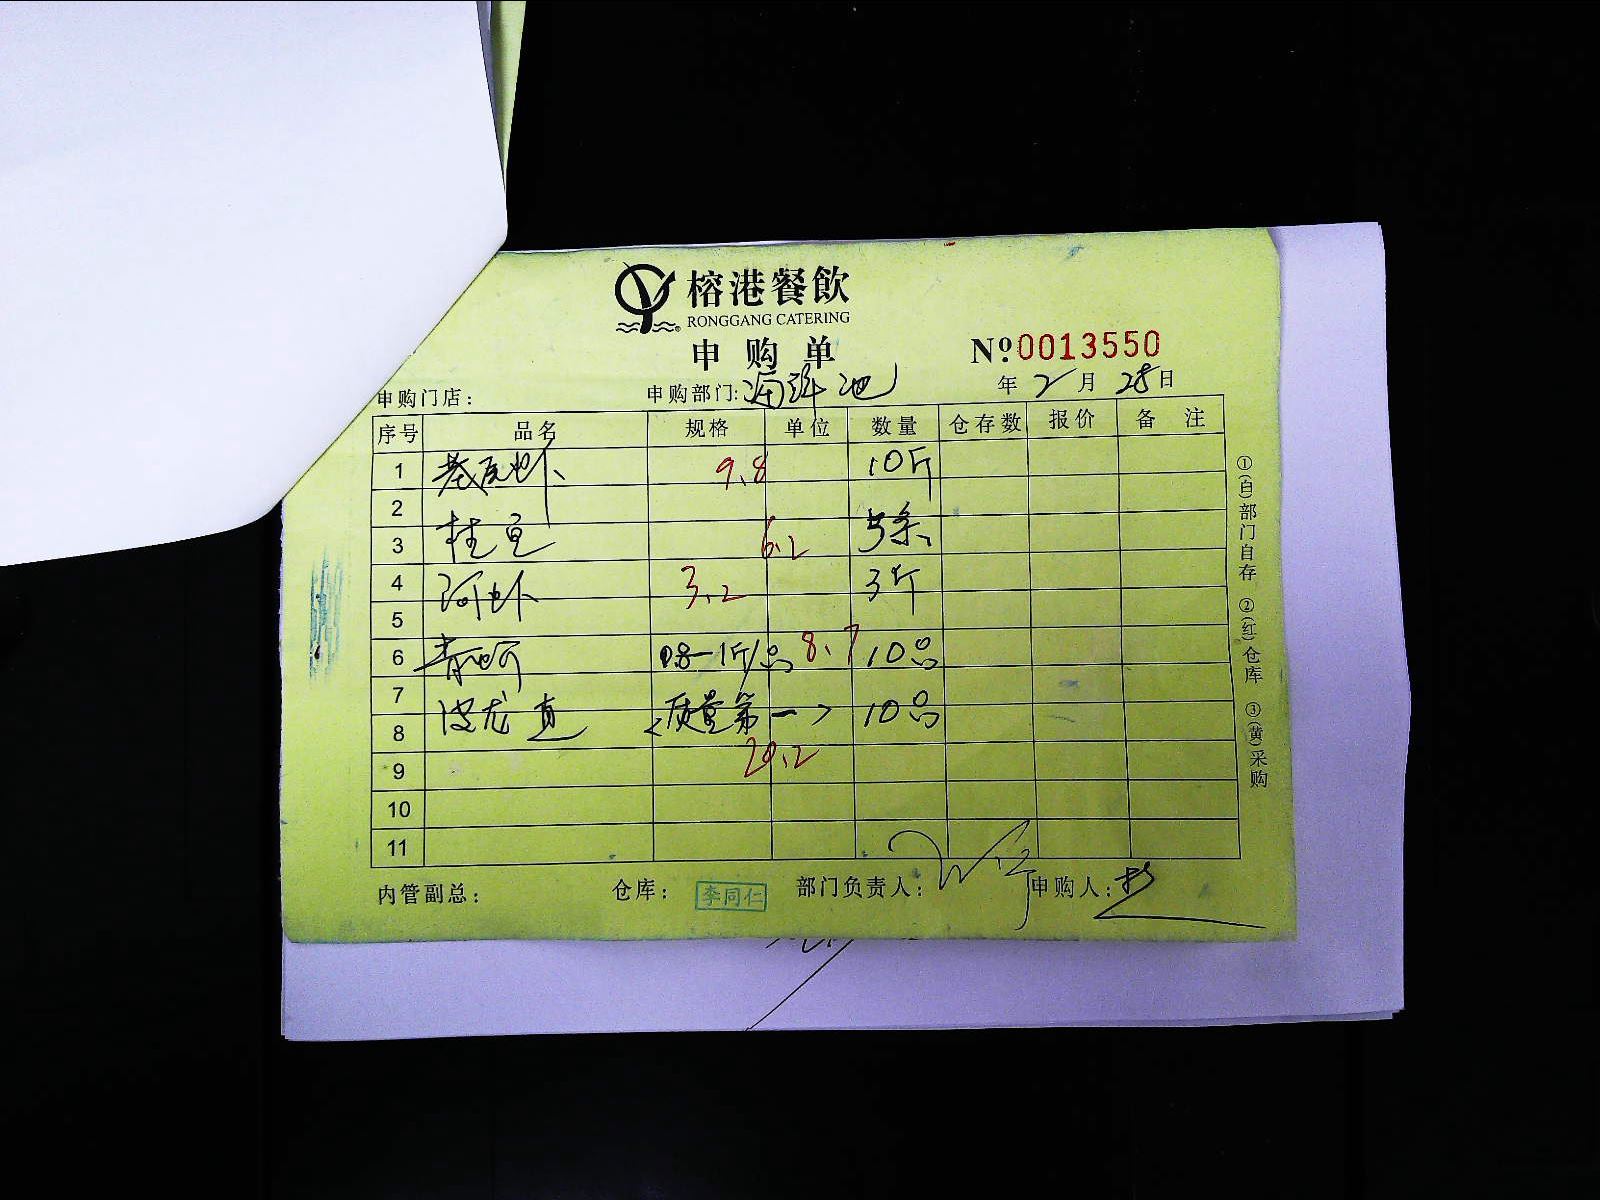 榕港餐飲
RONGGANG CATERING
申购单
Nº 0013550
申购门店： 申购部门：海鲜池 年 2 月 28 日
序号 品名 规格 单位 数量 仓存数 报价 备注
1 基尾虾 9.8 10斤
2
3 桂鱼 6.2 5条
4 河虾 3.2 3斤
5
6 青蟹 0.8-1斤/只 8.7 10只
7
8 波龙 <质量第一> 10只
9 20.2
10
11
内管副总： 仓库： 李同仁 部门负责人： 申购人：
①(白)部门自存 ②(红)仓库 ③(黄)采购